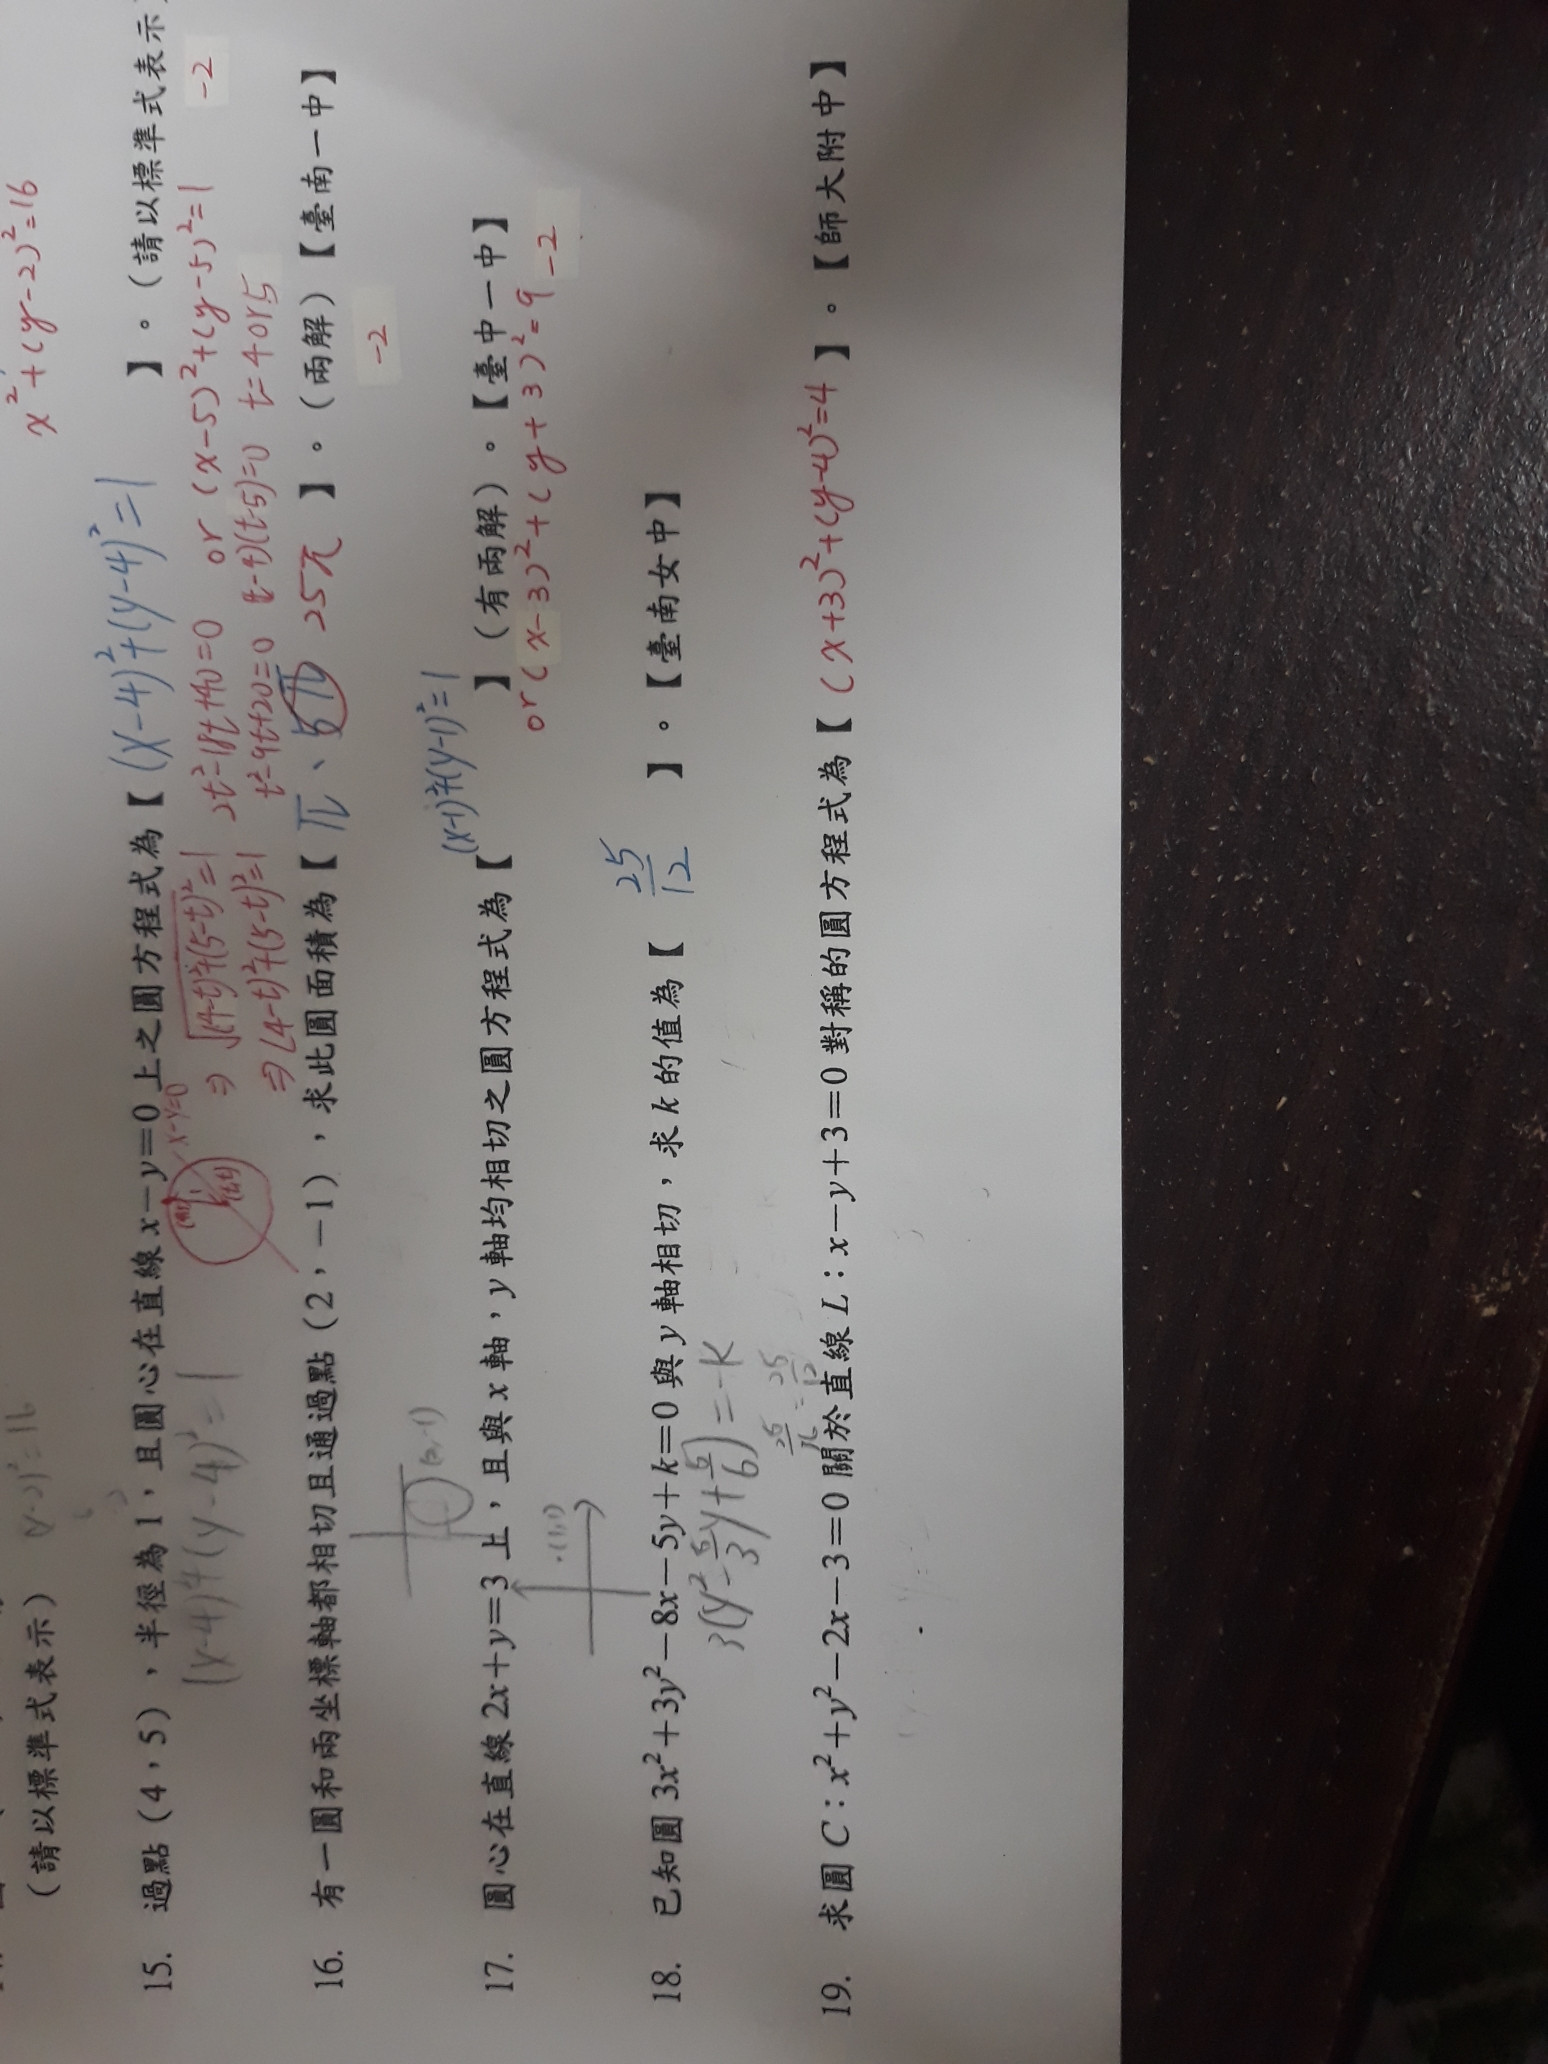 x²+(y-2)²=16
(請以標準式表示)
15. 過點(4,5),半徑為1,且圓心在直線x-y=0上之圓方程式為【 (x-4)²+(y-4)²=1 】。(請以標準式表示
(x-4)²+(y-4)²=1
x-y=0
(t,t)
⇒ √(4-t)²+(5-t)²=1 2t²-18t+40=0 or (x-5)²+(y-5)²=1 -2
⇒ (4-t)²+(5-t)²=1 t²-9t+20=0 (t-4)(t-5)=0 t=4 or 5
16. 有一圓和兩坐標軸都相切且通過點(2,-1),求此圓面積為【 π、5π 25π 】。(兩解)【臺南一中】
-2
(2,-1)
(x-1)²+(y-1)²=1
17. 圓心在直線2x+y=3上,且與x軸,y軸均相切之圓方程式為【 】(有兩解)。【臺中一中】
or (x-3)²+(y+3)²=9 -2
(1,1)
18. 已知圓3x²+3y²-8x-5y+k=0與y軸相切,求k的值為【 25/12 】。【臺南女中】
3(y²-5/3y+5/6)=-k
25/12
19. 求圓C:x²+y²-2x-3=0關於直線L:x-y+3=0對稱的圓方程式為【 (x+3)²+(y-4)²=4 】。【師大附中】